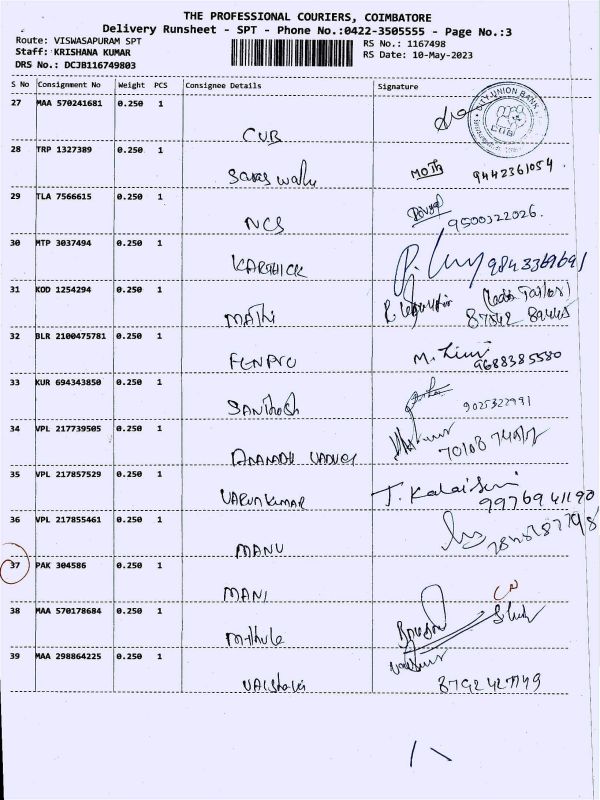 THE PROFESSIONAL COURIERS, COIMBATORE
Delivery Runsheet - SPT - Phone No.:0422-3505555 - Page No.:3
Route: VISWASAPURAM SPT
RS No.: 1167498
Staff: KRISHANA KUMAR
RS Date: 10-May-2023
DRS No.: DCJB116749803
S No Consignment No Weight PCS Consignee Details Signature
27 MAA 570241681 0.250 1
CITY UNION BANK
CUB
28 TRP 1327389 0.250 1
9442361054
29 TLA 7566615 0.250 1
NCS 9500322026.
30 MTP 3037494 0.250 1
KARTHICK 9843369691
31 KOD 1254294 0.250 1
MAThi
32 BLR 2100475781 0.250 1
FENPRO 9688385580
33 KUR 694343850 0.250 1
SANThosh 9025322991
34 VPL 217739505 0.250 1
35 VPL 217857529 0.250 1
VARUNKUMAR 9976941190
36 VPL 217855461 0.250 1
MANU
37 PAK 304586 0.250 1
MANI
38 MAA 570178684 0.250 1
39 MAA 298864225 0.250 1